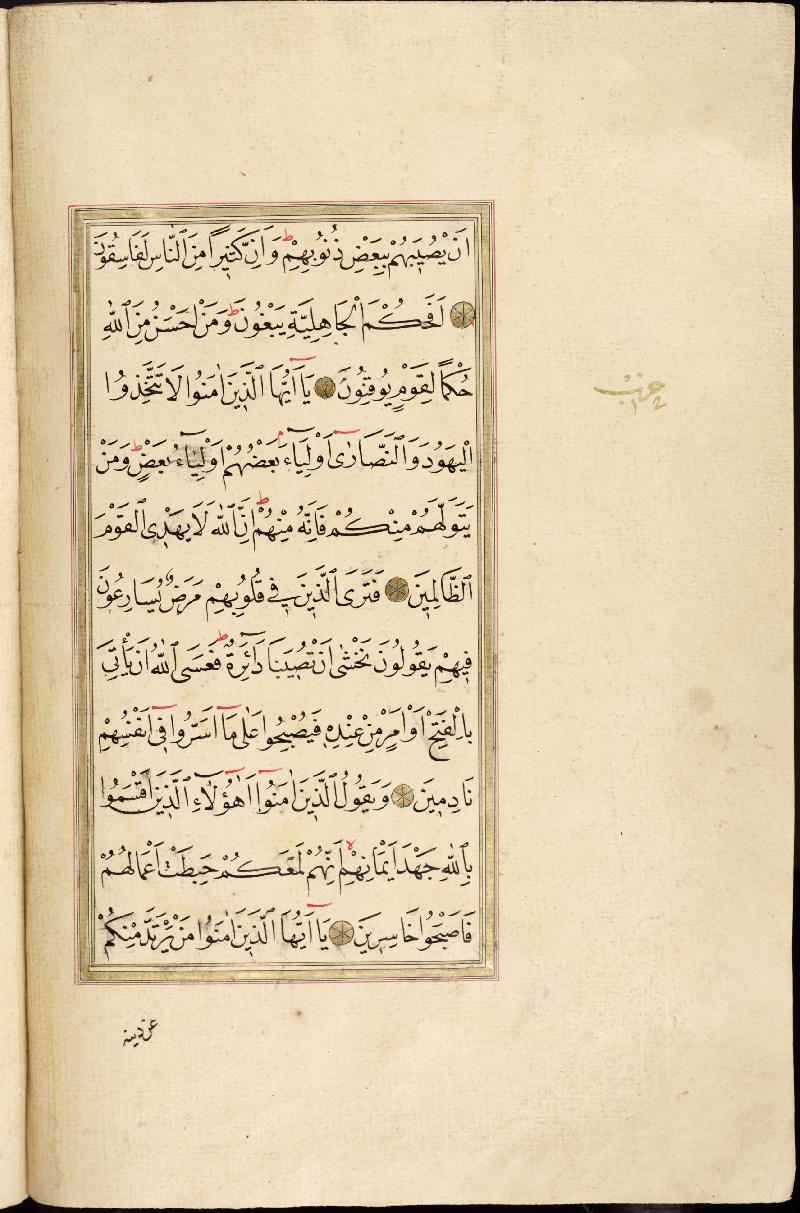 اَنْ يُصٖيبَهُمْ بِبَعْضِ ذُنُوبِهِمْ ط وَاِنَّ كَثٖيراً مِنَ النَّاسِ لَفَاسِقُونَ
اَفَحُكْمَ الْجَاهِلِيَّةِ يَبْغُونَ ط وَمَنْ اَحْسَنُ مِنَ اللّٰهِ
حُكْمًا لِقَوْمٍ يُوقِنُونَ يَٓا اَيُّهَا الَّذٖينَ اٰمَنُوا لَا تَتَّخِذُوا
الْيَهُودَ وَالنَّصَارٰٓى اَوْلِيَٓاءَ بَعْضُهُمْ اَوْلِيَٓاءُ بَعْضٍ ط وَمَنْ
يَتَوَلَّهُمْ مِنْكُمْ فَاِنَّهُ مِنْهُمْ ط اِنَّ اللّٰهَ لَا يَهْدِى الْقَوْمَ
الظَّالِمٖينَ فَتَرَى الَّذٖينَ فٖى قُلُوبِهِمْ مَرَضٌ يُسَارِعُونَ
فٖيهِمْ يَقُولُونَ نَخْشٰٓى اَنْ تُصٖيبَنَا دَٓائِرَةٌ ط فَعَسَى اللّٰهُ اَنْ يَأْتِىَ
بِالْفَتْحِ اَوْ اَمْرٍ مِنْ عِنْدِهٖ فَيُصْبِحُوا عَلٰى مَٓا اَسَرُّوا فٖٓى اَنْفُسِهِمْ
نَادِمٖينَ وَيَقُولُ الَّذٖينَ اٰمَنُٓوا اَهٰٓؤُلَٓاءِ الَّذٖينَ اَقْسَمُوا
بِاللّٰهِ جَهْدَ اَيْمَانِهِمْ لا اِنَّهُمْ لَمَعَكُمْ حَبِطَتْ اَعْمَالُهُمْ
فَاَصْبَحُوا خَاسِرٖينَ يَٓا اَيُّهَا الَّذٖينَ اٰمَنُوا مَنْ يَرْتَدَّ مِنْكُمْ
عن دينه
حزب